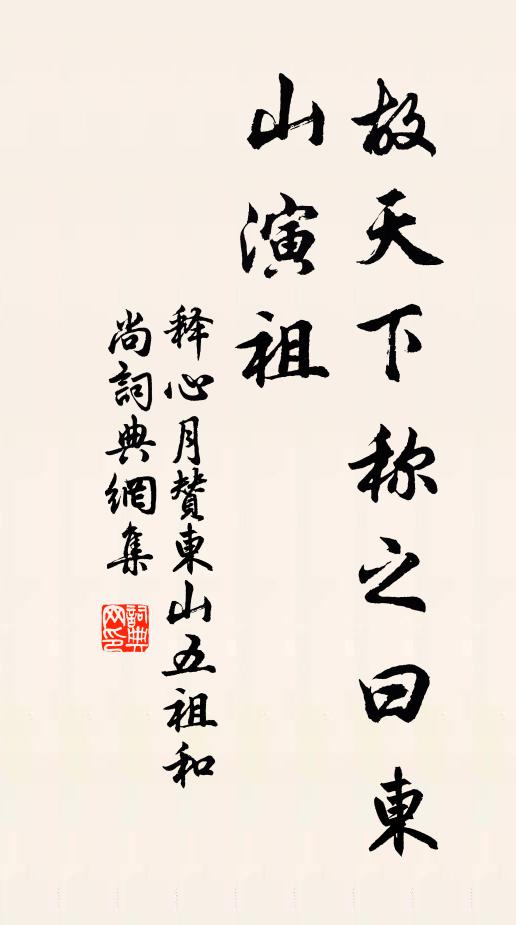 故天下称之曰東
山演祖
释心月賛東山五祖和
尚詞典網集
詞典
网印